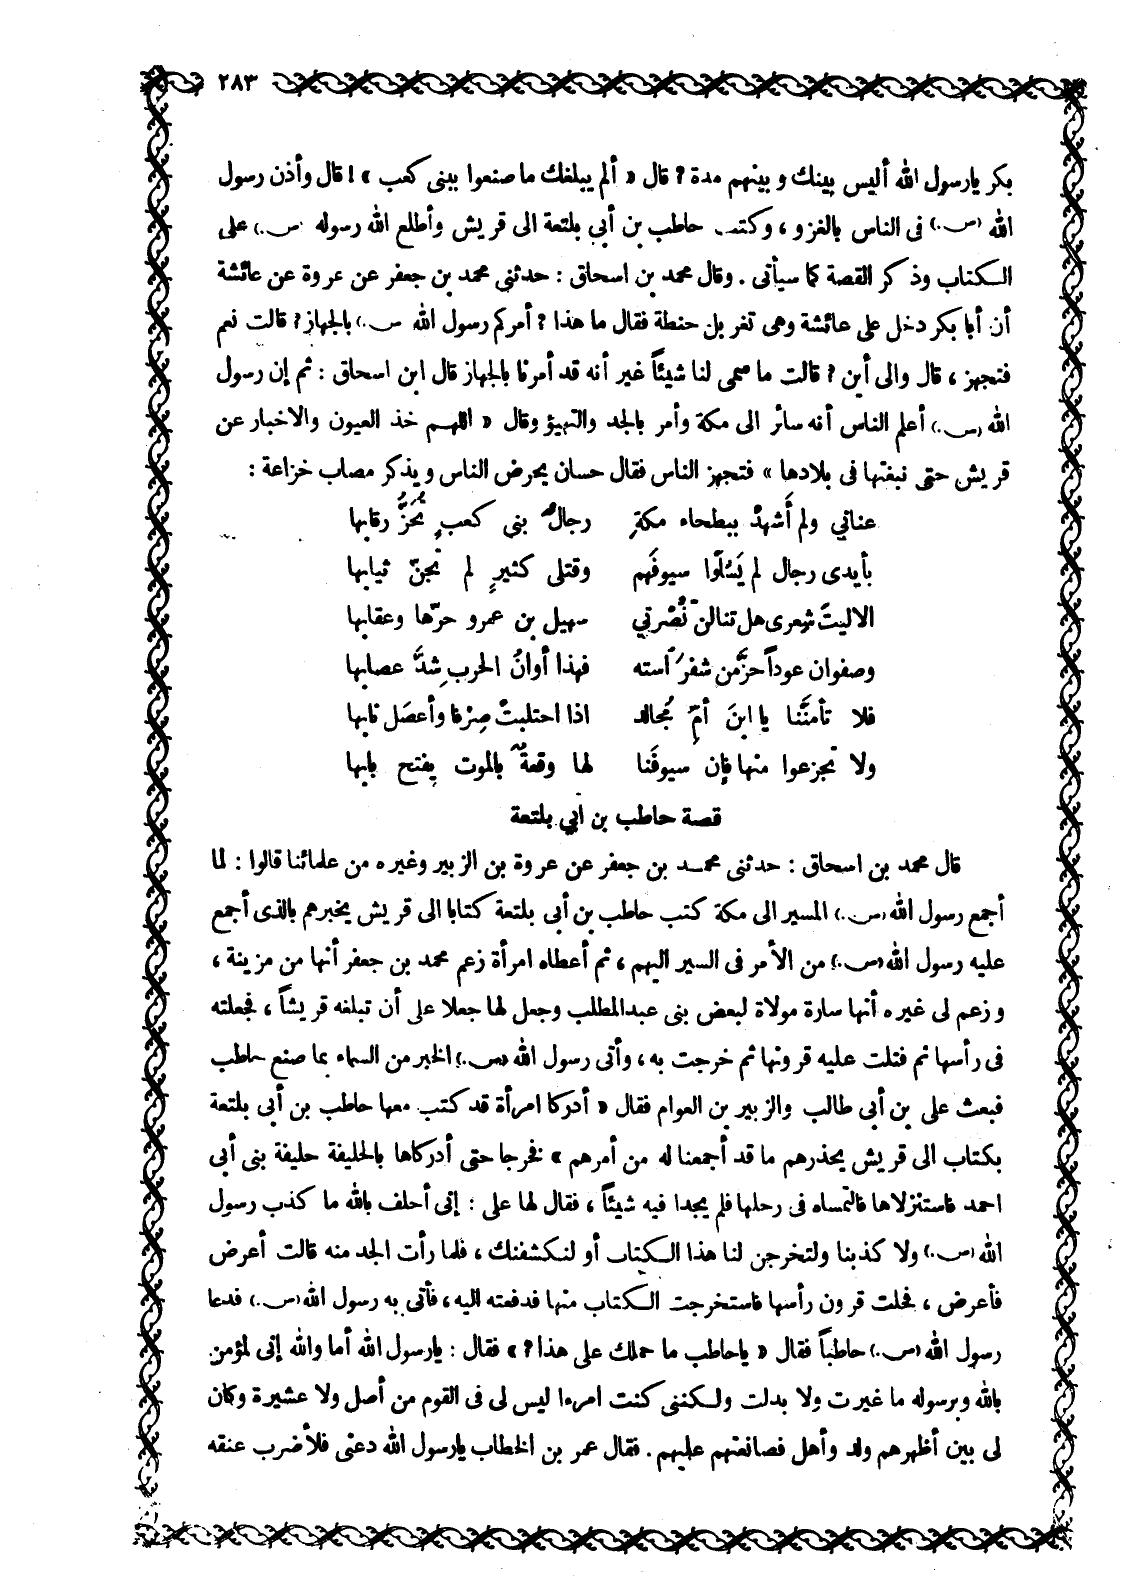 ٢٨٣
بكر يارسول الله أليس بينك وبينهم مدة ? قال « ألم يبلغك ما صنعوا ببنى كعب » ! قال وأذن رسول
الله (ص.) فى الناس بالغزو ، وكتب حاطب بن أبى بلتعة الى قريش وأطلع الله رسوله (ص.) على
الكتاب وذكر القصة كما سيأتى . وقال محمد بن اسحاق : حدثنى محمد بن جعفر عن عروة عن عائشة
أن أبا بكر دخل على عائشة وهى تغربل حنطة فقال ما هذا ? أمركم رسول الله (ص.) بالجهاز ? قالت نعم
فتجهز ، قال والى أين ? قالت ما سمى لنا شيئاً غير أنه قد أمرنا بالجهاز قال ابن اسحاق : ثم إن رسول
الله (ص.) أعلم الناس أنه سائر الى مكة وأمر بالجد والتهيؤ وقال « اللهم خذ العيون والاخبار عن
قريش حتى نبغتها فى بلادها » فتجهز الناس فقال حسان يحرض الناس ويذكر مصاب خزاعة :
عنانى ولم أَشهدْ ببطحاء مكةِ رجالُ بنى كعبٍ تُحَزُّ رقابها
بأيدى رجال لم يَسُلّوا سيوفَهم وقتلى كثيرٍ لم تجنّ ثيابها
الاليتَ شعرى هل تنالنّ نُصْرتي سهيل بن عمرو حرّها وعقابها
وصفوان عوداً حزَّ من شفر استه فهذا أوانُ الحرب شدَّ عصابها
فلا تأمنَنَّا يا ابنَ أمِّ مُجالد اذا احتلبتْ صِرْفا وأعصَل نابها
ولا تجزعوا منها فإن سيوفَنا لها وقعةٌ بالموت يفتح بابها
قصة حاطب بن ابي بلتعة
قال محمد بن اسحاق : حدثنى محمد بن جعفر عن عروة بن الزبير وغيره من علمائنا قالوا : لما
أجمع رسول الله (ص.) المسير الى مكة كتب حاطب بن أبى بلتعة كتابا الى قريش يخبرهم بالذى أجمع
عليه رسول الله (ص.) من الأمر فى السير اليهم ، ثم أعطاه امرأة زعم محمد بن جعفر أنها من مزينة ،
وزعم لى غيره أنها سارة مولاة لبعض بنى عبدالمطلب وجعل لها جعلا على أن تبلغه قريشاً ، فجعلته
فى رأسها ثم فتلت عليه قرونها ثم خرجت به ، وأتى رسول الله (ص.) الخبر من السماء بما صنع حاطب
فبعث على بن أبى طالب والزبير بن العوام فقال « أدركا امرأة قد كتب معها حاطب بن أبى بلتعة
بكتاب الى قريش يحذرهم ما قد أجمعنا له من أمرهم » فخرجا حتى أدركاها بالحليفة حليفة بنى أبى
احمد فاستنزلاها فالتمساه فى رحلها فلم يجدا فيه شيئاً ، فقال لها على : إنى أحلف بالله ما كذب رسول
الله (ص.) ولا كذبنا ولتخرجن لنا هذا الكتاب أو لنكشفنك ، فلما رأت الجد منه قالت أعرض
فأعرض ، فحلت قرون رأسها فاستخرجت الكتاب منها فدفعته اليه ، فأتى به رسول الله (ص.) فدعا
رسول الله (ص.) حاطباً فقال « ياحاطب ما حملك على هذا ? » فقال : يارسول الله أما والله إنى لمؤمن
بالله وبرسوله ما غيرت ولا بدلت ولكننى كنت امرءا ليس لى فى القوم من أصل ولا عشيرة وكان
لى بين أظهرهم ولد وأهل فصانعتهم عليهم . فقال عمر بن الخطاب يارسول الله دعنى فلأضرب عنقه